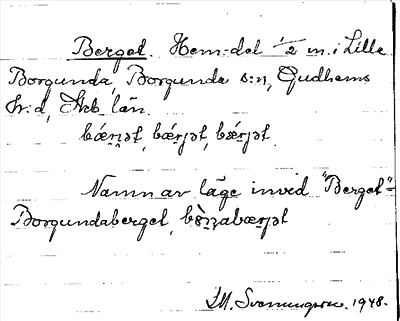 Berget. Hem:del 1/2 m. i Lilla
Borgunda, Borgunda s:n, Gudhems
h:d, Skb. län.
bǽrjət, bǽrjət, bǽrjət.
Namn av läge invid "Berget" =
Borgundaberget,
Svenningsson. 1948.